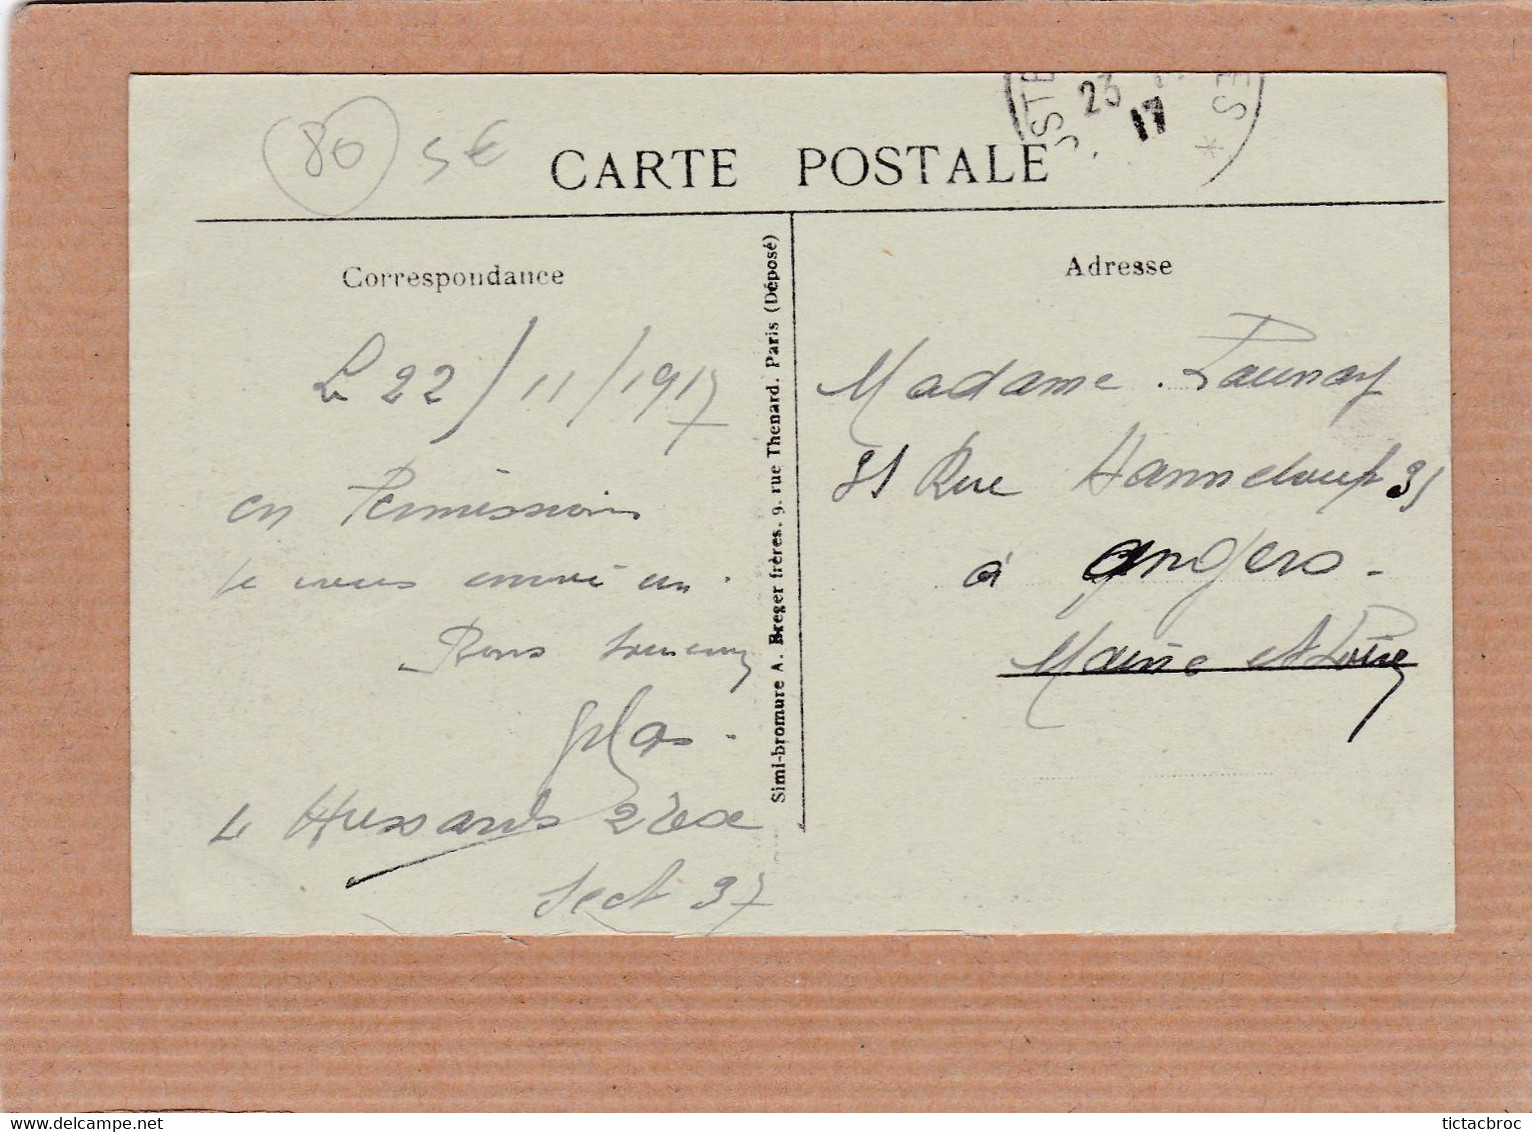 80 5 €
CARTE POSTALE
23
17
Correspondance
Le 22/11/1917
en Permission
Je vous envoie un
Bons
4 Hussards 2
Sect 37
Simi-bromure A. Breger frères. 9. rue Thenard. Paris (Déposé)
Adresse
Madame Launay
Rue Hanneloup 35
à Angers -
Maine et Loire
www.delcampe.net
tictacbroc